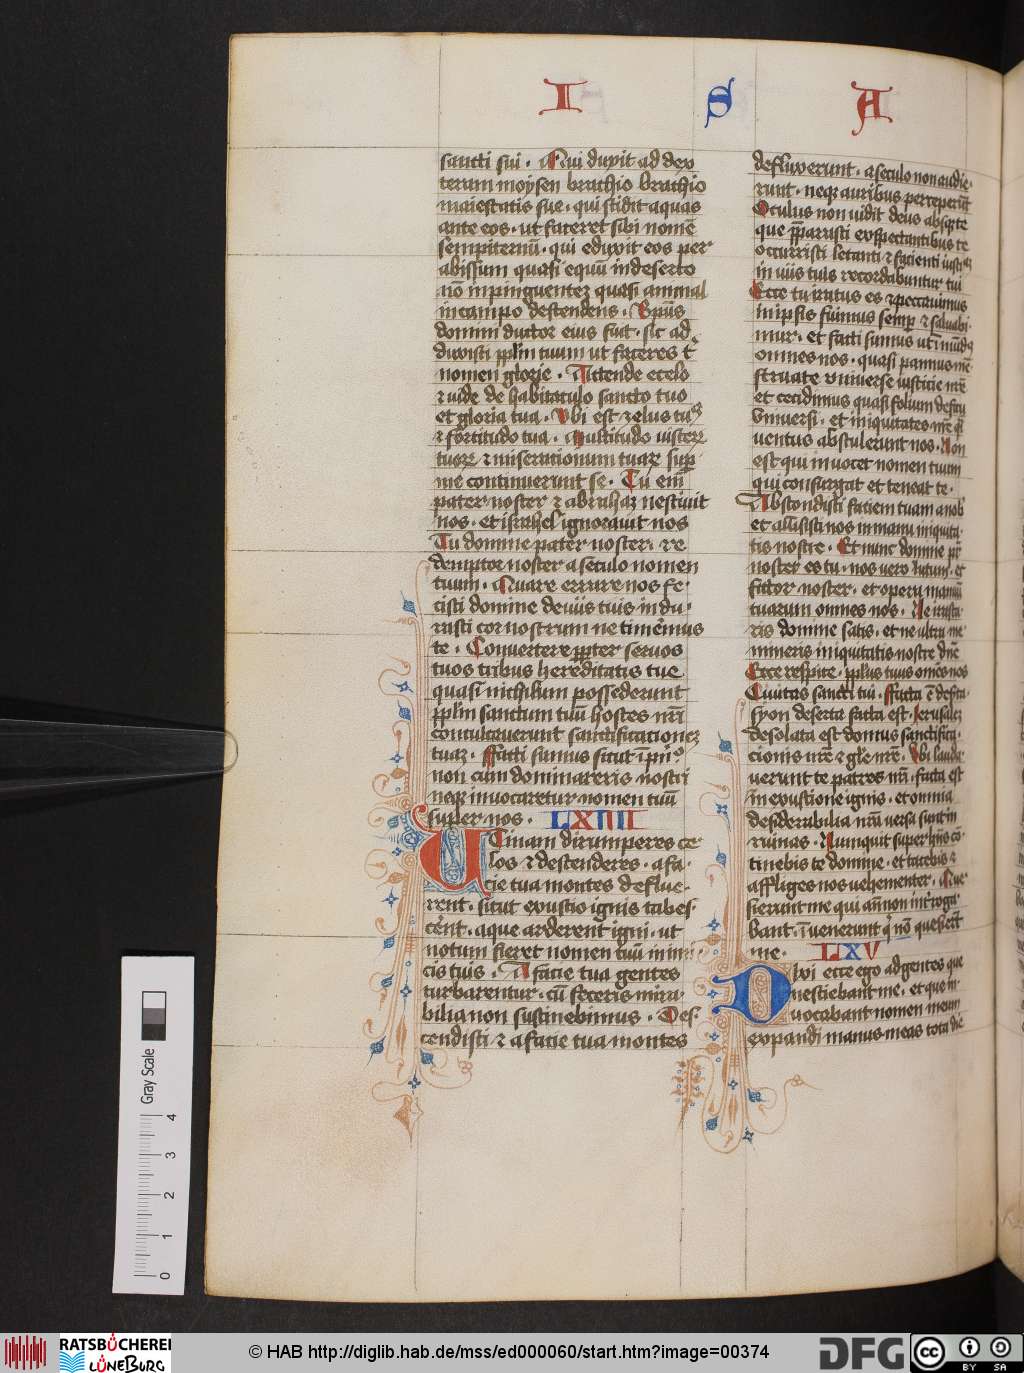 I S A
sancti sui . Qui duxit ad dex
teram moysen brachio brachio
maiestatis sue . qui scidit aquas
ante eos . ut faceret sibi nomē
sempiternū . qui eduxit eos per
abissum quasi equū in deserto
nō inpinguentez quasi animal
in campo descendens . Sp̄us
domini ductor eius fuit . sic ad
duxisti ppl̄m tuum ut faceres t̄
nomen glorie . Attende e celo
⁊ uide de habitaculo sancto tuo
et gloria tua . Vbi est zelus tuꝯ
⁊ fortitudo tua . Multitudo uiscerꝝ
tuoꝝ ⁊ miserationum tuaꝝ sup̄
me continuerunt se . Tu enī
pater noster ⁊ abrahaz nesciuit
nos . et israhel ignorauit nos
Tu domine pater noster . re
demptor noster a seculo nomen
tuum . Quare errare nos fe
cisti domine de uiis tuis indu
rasti cor nostrum ne timēmus
te . Conuertere ꝓpter seruos
tuos tribus hereditatis tue
quasi nichilum possederunt
ppl̄m sanctum tuū hostes nr̄i
conculcauerunt sanctificationez
tuaz . ffacti sumus sicut ī pn̄i°
non cum dominareris nostri
neqꝫ inuocaretur nomen tuū
super nos . LXIIII
Utinam dirumperes ce
los ⁊ descenderes . a fa
cie tua montes deflue
rent . sicut exustio ignis tabes
cēnt . aque arderent igni . ut
notum fieret nomen tuū inimi
cis tuis . A facie tua gentes
turbarentur . cū feceris mira
bilia non sustinebimus . Des
cendisti ⁊ a facie tua montes
defluxerunt . a seculo non audie
runt . neqꝫ auribus perceperūt
Oculus non uidit deus absqꝫ te
que p̄parasti exspectantibus te
occurristi letanti ⁊ facienti iusticiā
in uiis tuis recordabuntur tui
Ecce tu iratus es ⁊ peccauimus
in ipsis fuimus semp̄ ⁊ saluabi
mur . et facti sumus ut īmūdꝯ
omnes nos . quasi pannus mē
struate vniuerse iusticie nr̄e
et cecidimus quasi folium
Vniuersi . et iniquitates nr̄e q̄i
uentus abstulerunt nos . Non
est qui inuocet nomen tuum
qui consurgat et teneat te .
Abscondisti faciem tuam a nob
et allisisti nos in manu iniquita
tis nostre . Et nunc domine pr̄
noster es tu . nos vero lutum . et
fictor noster . et opera manuū
tuarum omnes nos . Ne irasca
ris domine satis . et ne ultra me
mineris iniquitatis nostre dn̄e
Ecce respice . ppl̄us tuus om̄es nos
Ciuitas sancti tui . ffacta ē deserta
syon deserta facta est . Ierusalez
desolata est domus sanctifica
cionis nr̄e ⁊ gl̄e nr̄e . Vbi lauda
uerunt te patres nr̄i . facta est
in exustione ignis . et omnia
desiderabilia nr̄a versa sunt in
ruinas . Nunquit super hiis cō
tinebis te domine . et tacebis ⁊
affliges nos vehementer . Que
sierunt me qui ante non int̄roga
bant . īuenerunt q̄ nō quesierūt
me . LXV
Dixi ecce ego ad gentes que
nesciebant me . et que nō
uocabant nomen meum
expandi manus meas tota die
Gray Scale
0 1 2 3 4
RATSBÜCHEREI
LÜNEBURG
© HAB http://diglib.hab.de/mss/ed000060/start.htm?image=00374
DFG
cc BY SA